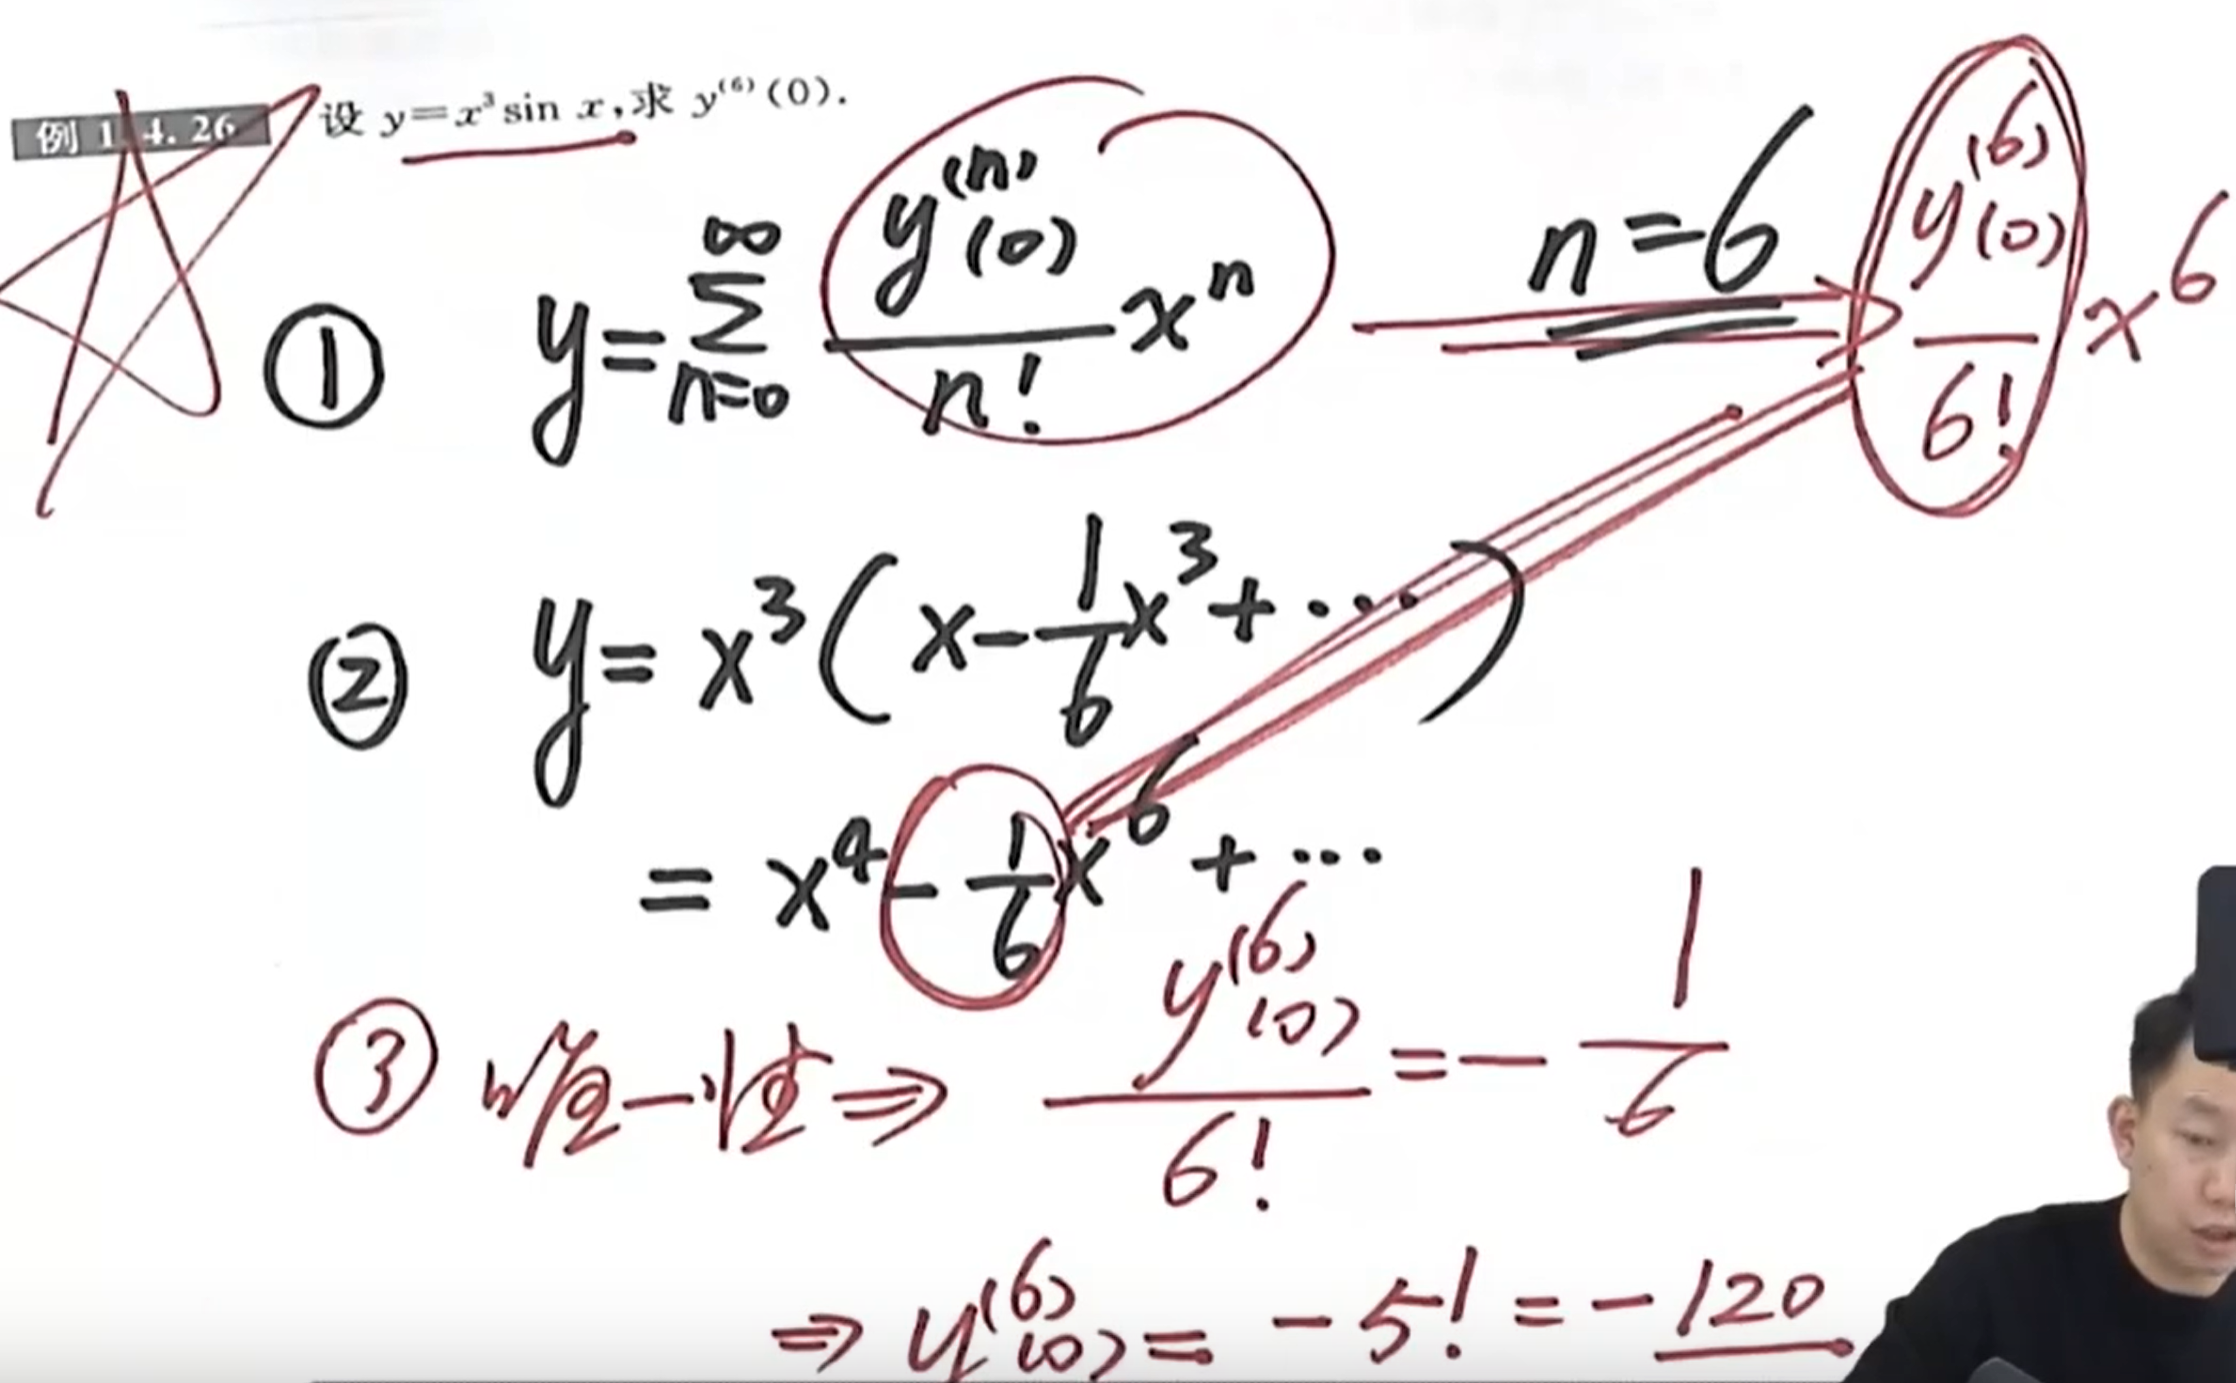 例 1.4.26 设 y=x³sin x,求 y⁽⁶⁾(0).
① y=∑_{n=0}^{∞} y⁽ⁿ⁾(0)/n! xⁿ n=6 y⁽⁶⁾(0)/6! x⁶
② y=x³(x-1/6x³+…)
=x⁴-1/6x⁶+…
③ 唯一性⇒ y⁽⁶⁾(0)/6! =-1/6
⇒ y⁽⁶⁾(0)=-5!=-120